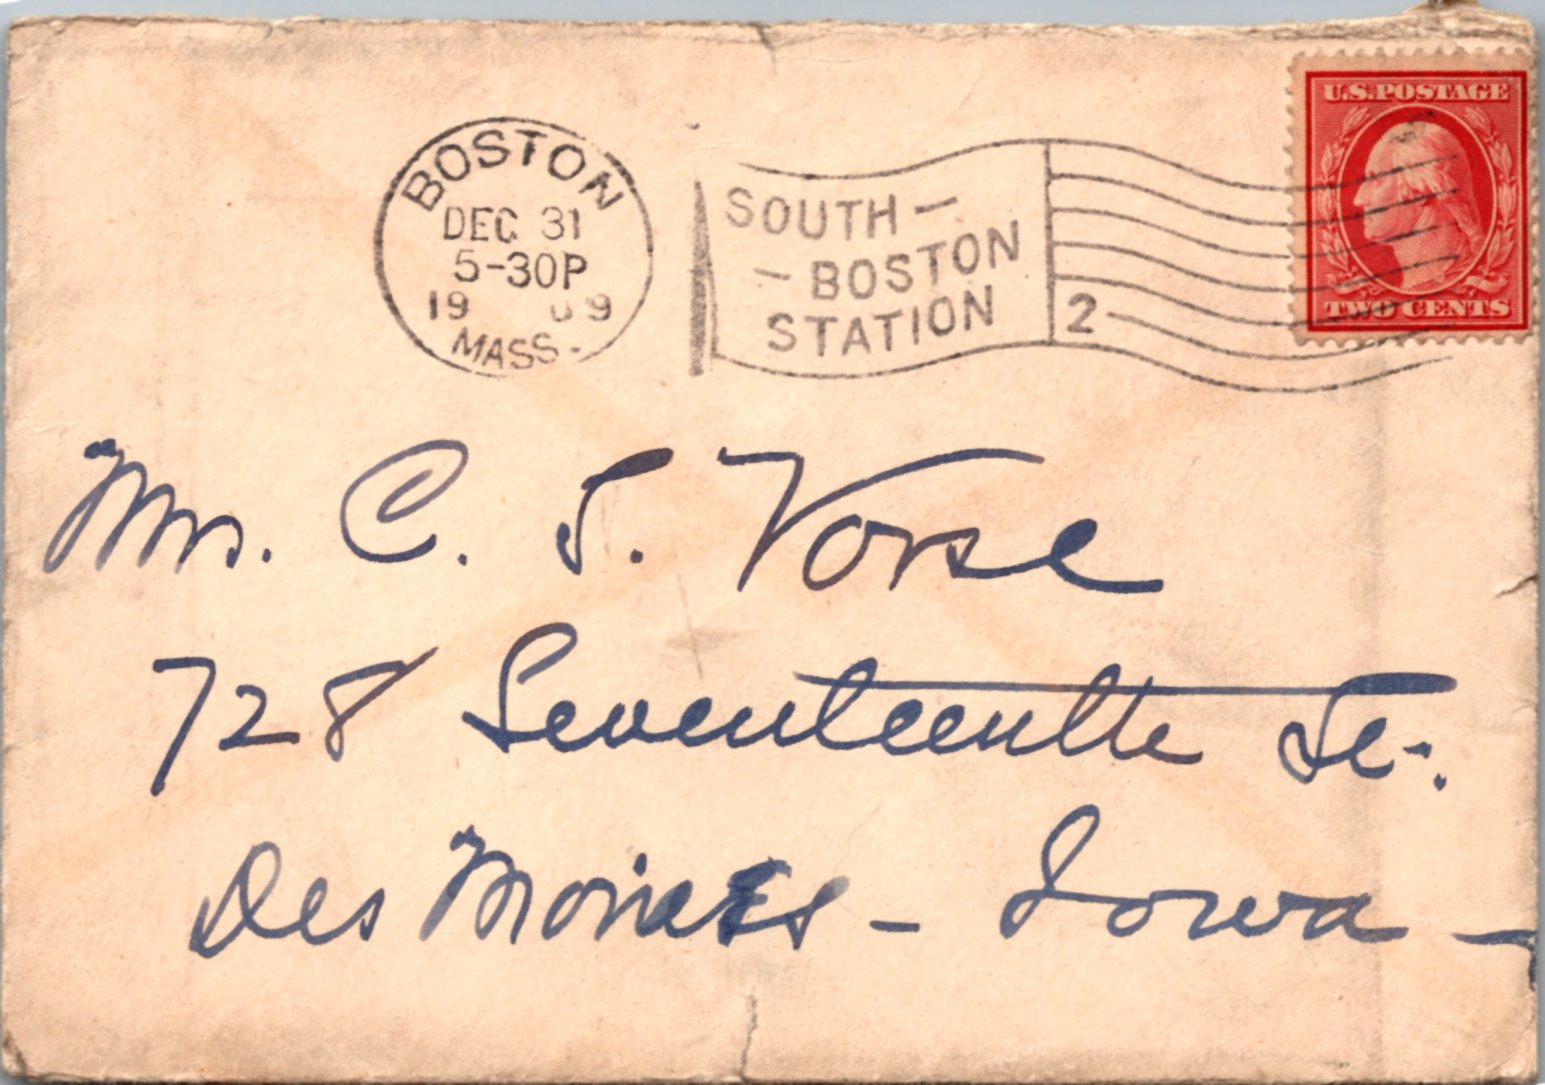 BOSTON
DEC 31
5-30P
19 09
MASS.
SOUTH-
-BOSTON
STATION
2
U.S. POSTAGE
TWO CENTS
Mrs. C. S. Vorse
728 Seventeenth St.
Des Moines - Iowa -